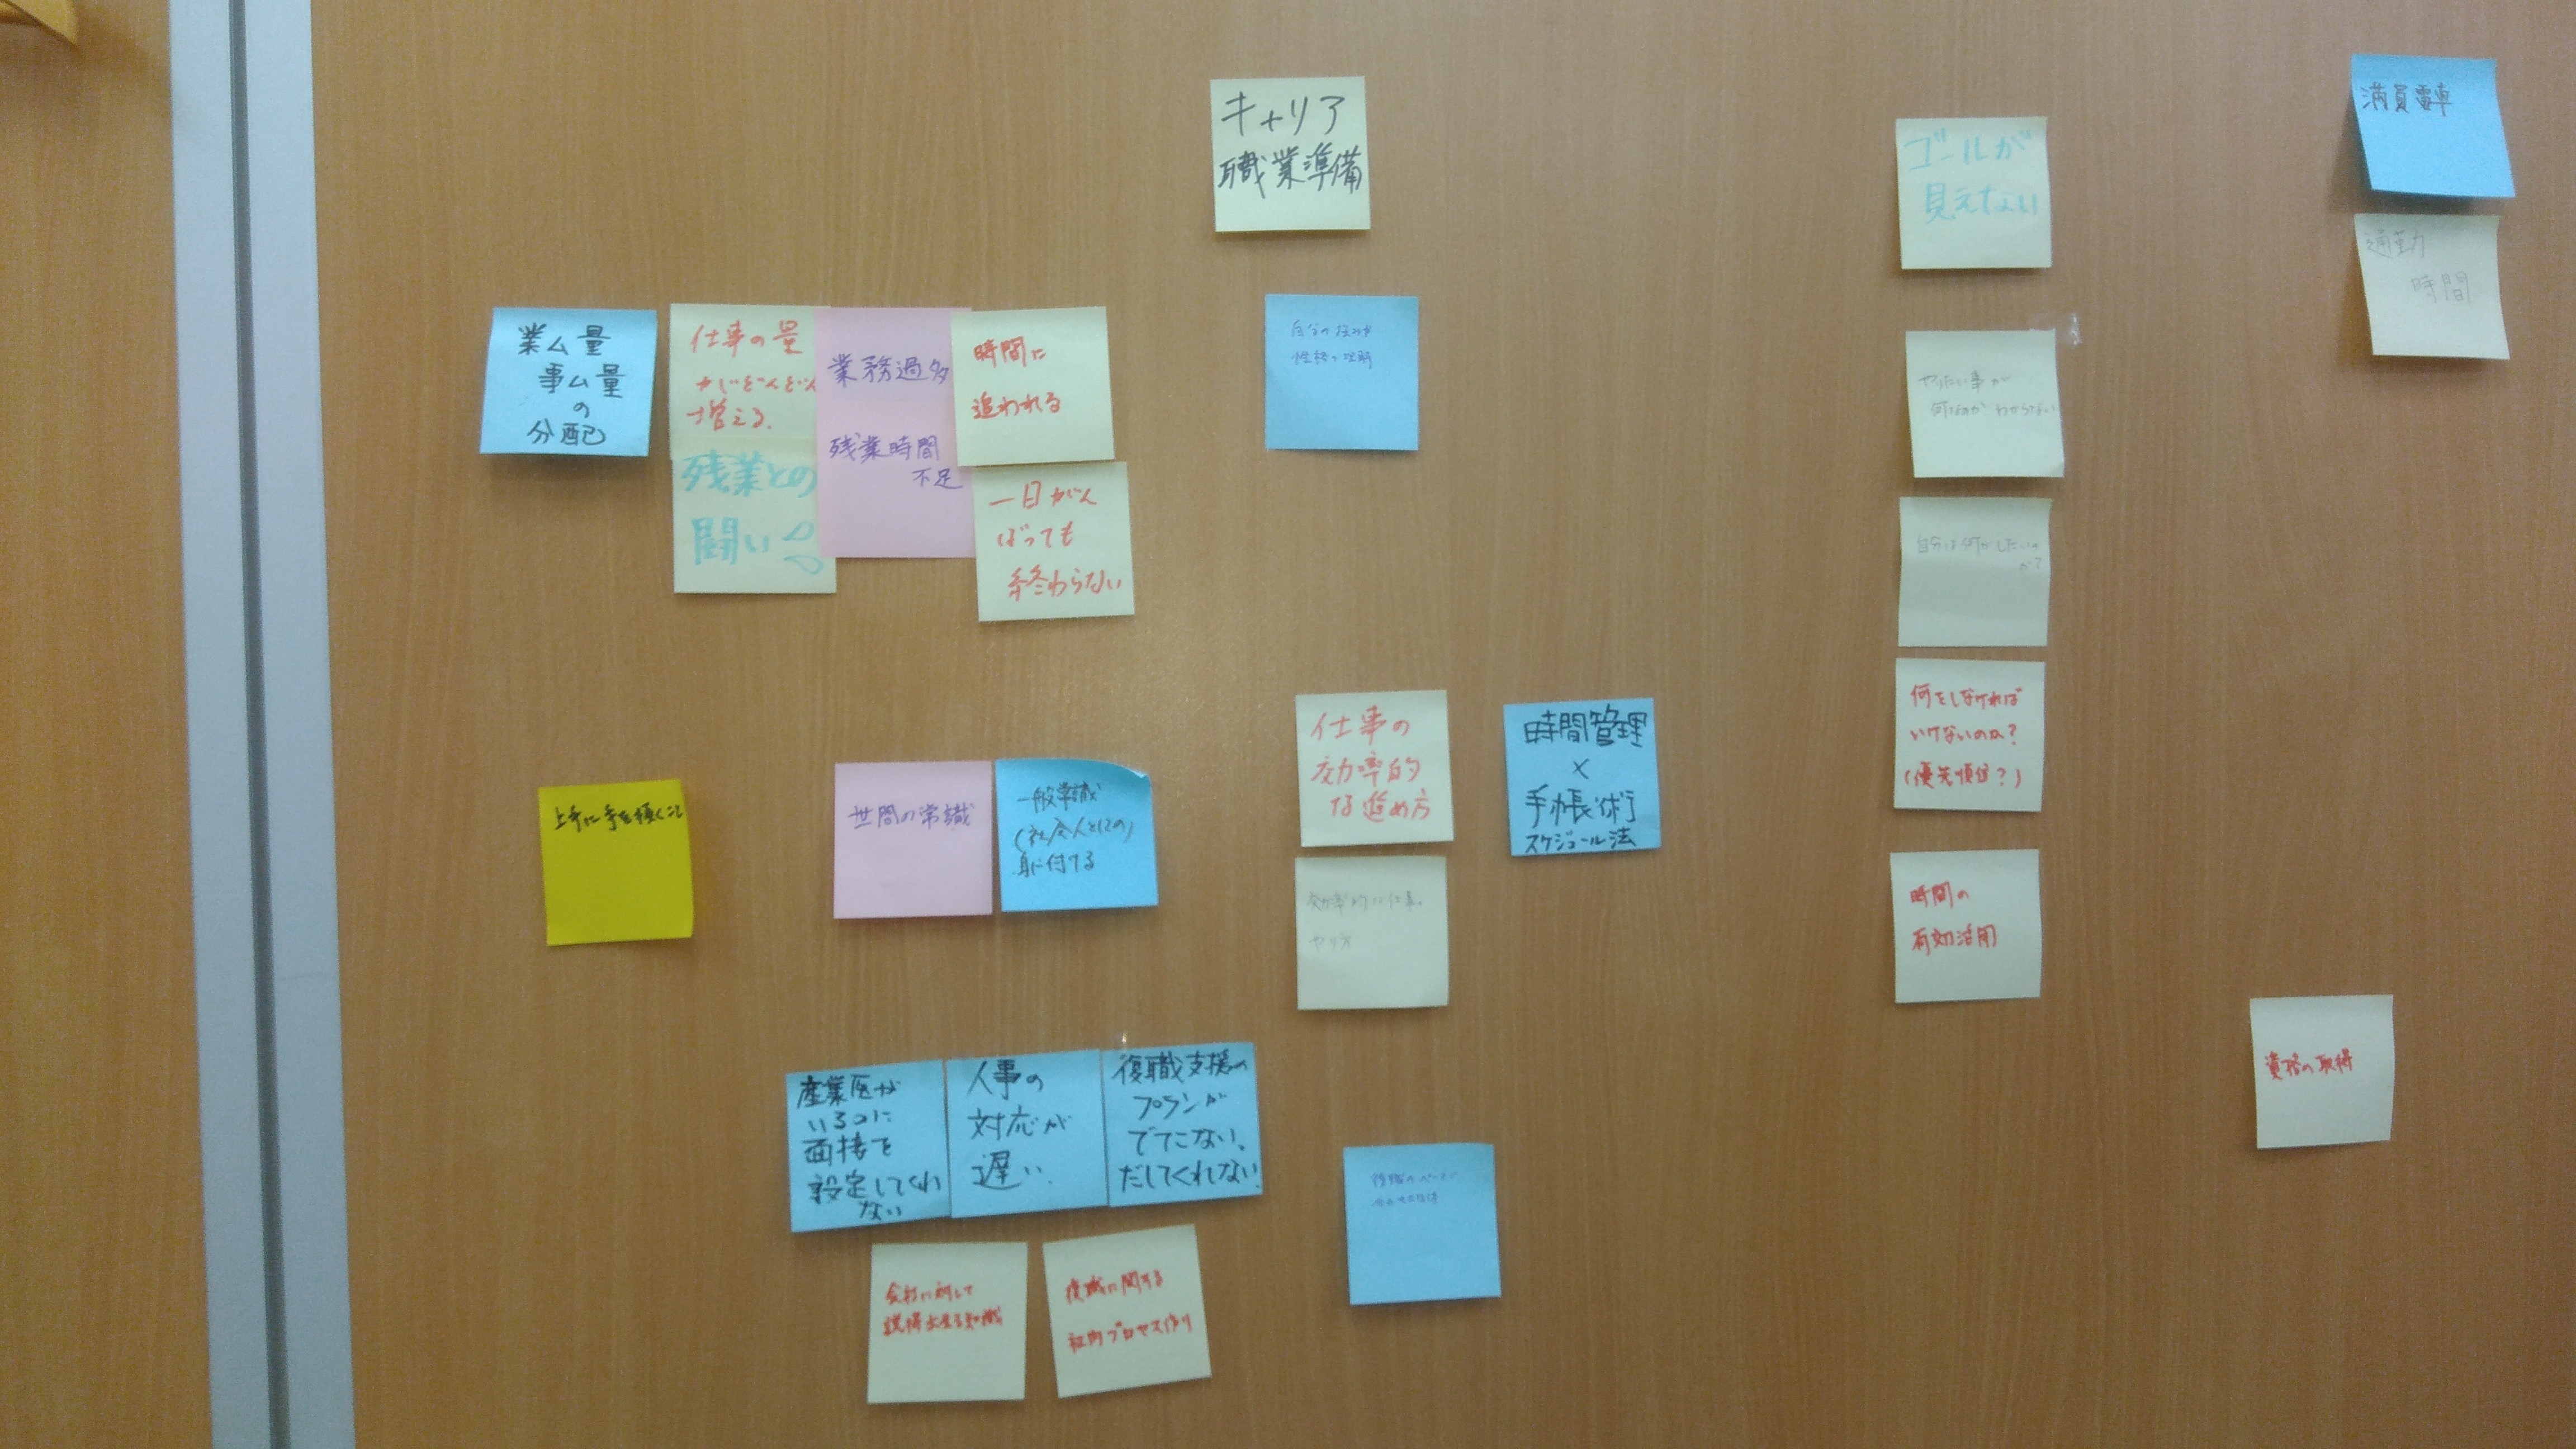 キャリア
職業準備
ゴールが
見えない
満員電車
通勤
時間
業ム量
事ム量
の
分配
仕事の量
がどんどん
増える.
残業との
闘い
業務過多
残業時間
不足
時間に
追われる
一日がん
ばっても
終わらない
自分の
性格の理解
やりたい事が
何なのか わからない
自分は何がしたいの
か?
何をしなければ
いけないのか?
(優先順位?)
時間の
有効活用
上手に手を抜くこと
世間の常識
一般常識
(社会人としての)
身に付ける
仕事の
効率的
な進め方
時間管理
×
手帳術
スケジュール法
効率的な仕事の
やり方
産業医が
いるのに
面接を
設定してくれ
ない
人事の
対応が
遅い.
復職支援の
プランが
でてこない.
だしてくれない.
会社に対して
説得出来る知識
復職に関する
社内プロセス作り
資格の取得